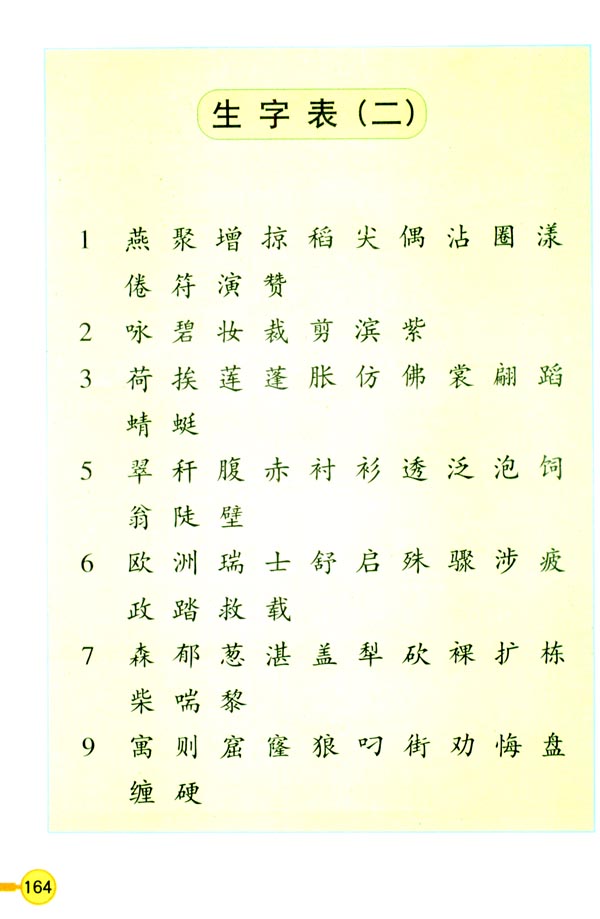 生字表(二)
1 燕 聚 增 掠 稻 尖 偶 沾 圈 漾
倦 符 演 赞
2 咏 碧 妆 裁 剪 滨 紫
3 荷 挨 莲 蓬 胀 仿 佛 裳 翩 蹈
蜻 蜓
5 翠 秆 腹 赤 衬 衫 透 泛 泡 饲
翁 陡 壁
6 欧 洲 瑞 士 舒 启 殊 骤 涉 疲
政 踏 救 载
7 森 郁 葱 湛 盖 犁 砍 裸 扩 栋
柴 喘 黎
9 寓 则 窟 窿 狼 叼 街 劝 悔 盘
缠 硬
164